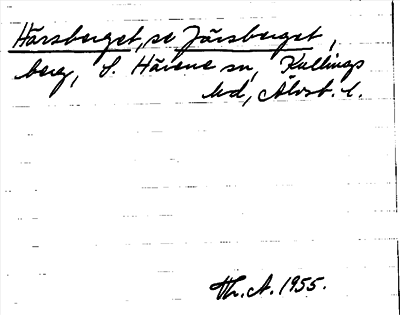 Härsberget, se Järsberget,
berg, S. Härene sn, Kullings
hd, Älvsb. l.
Th. A. 1955.